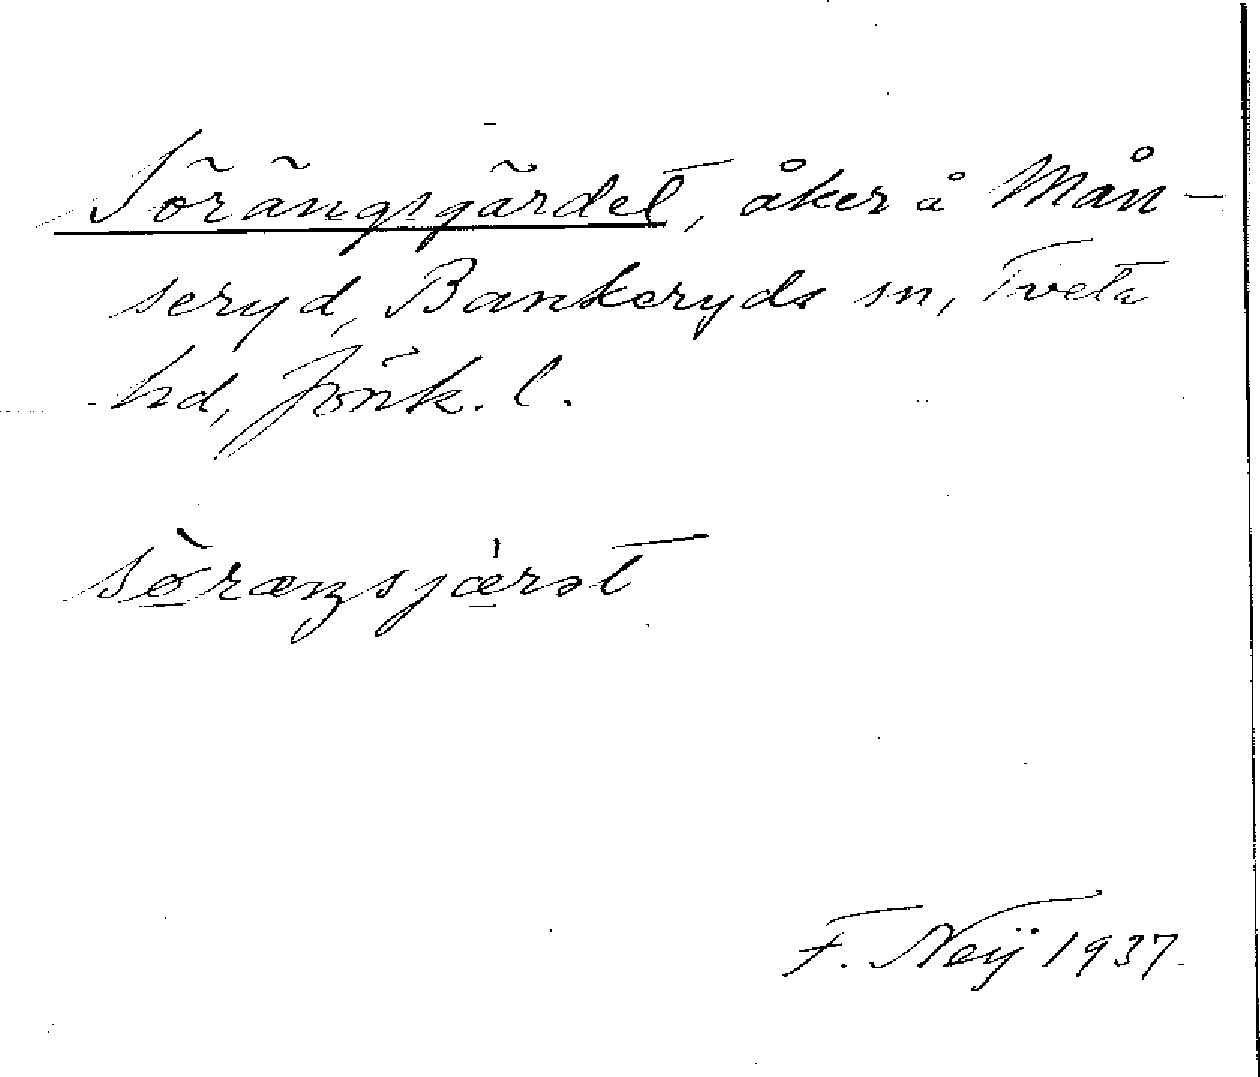 Sörängsgärdet, åker å Mån-
seryd, Bankeryds sn, Tveta
hd, Jönk. l.
sø̀ræŋsjæ̍rət
F. Neij 1937.